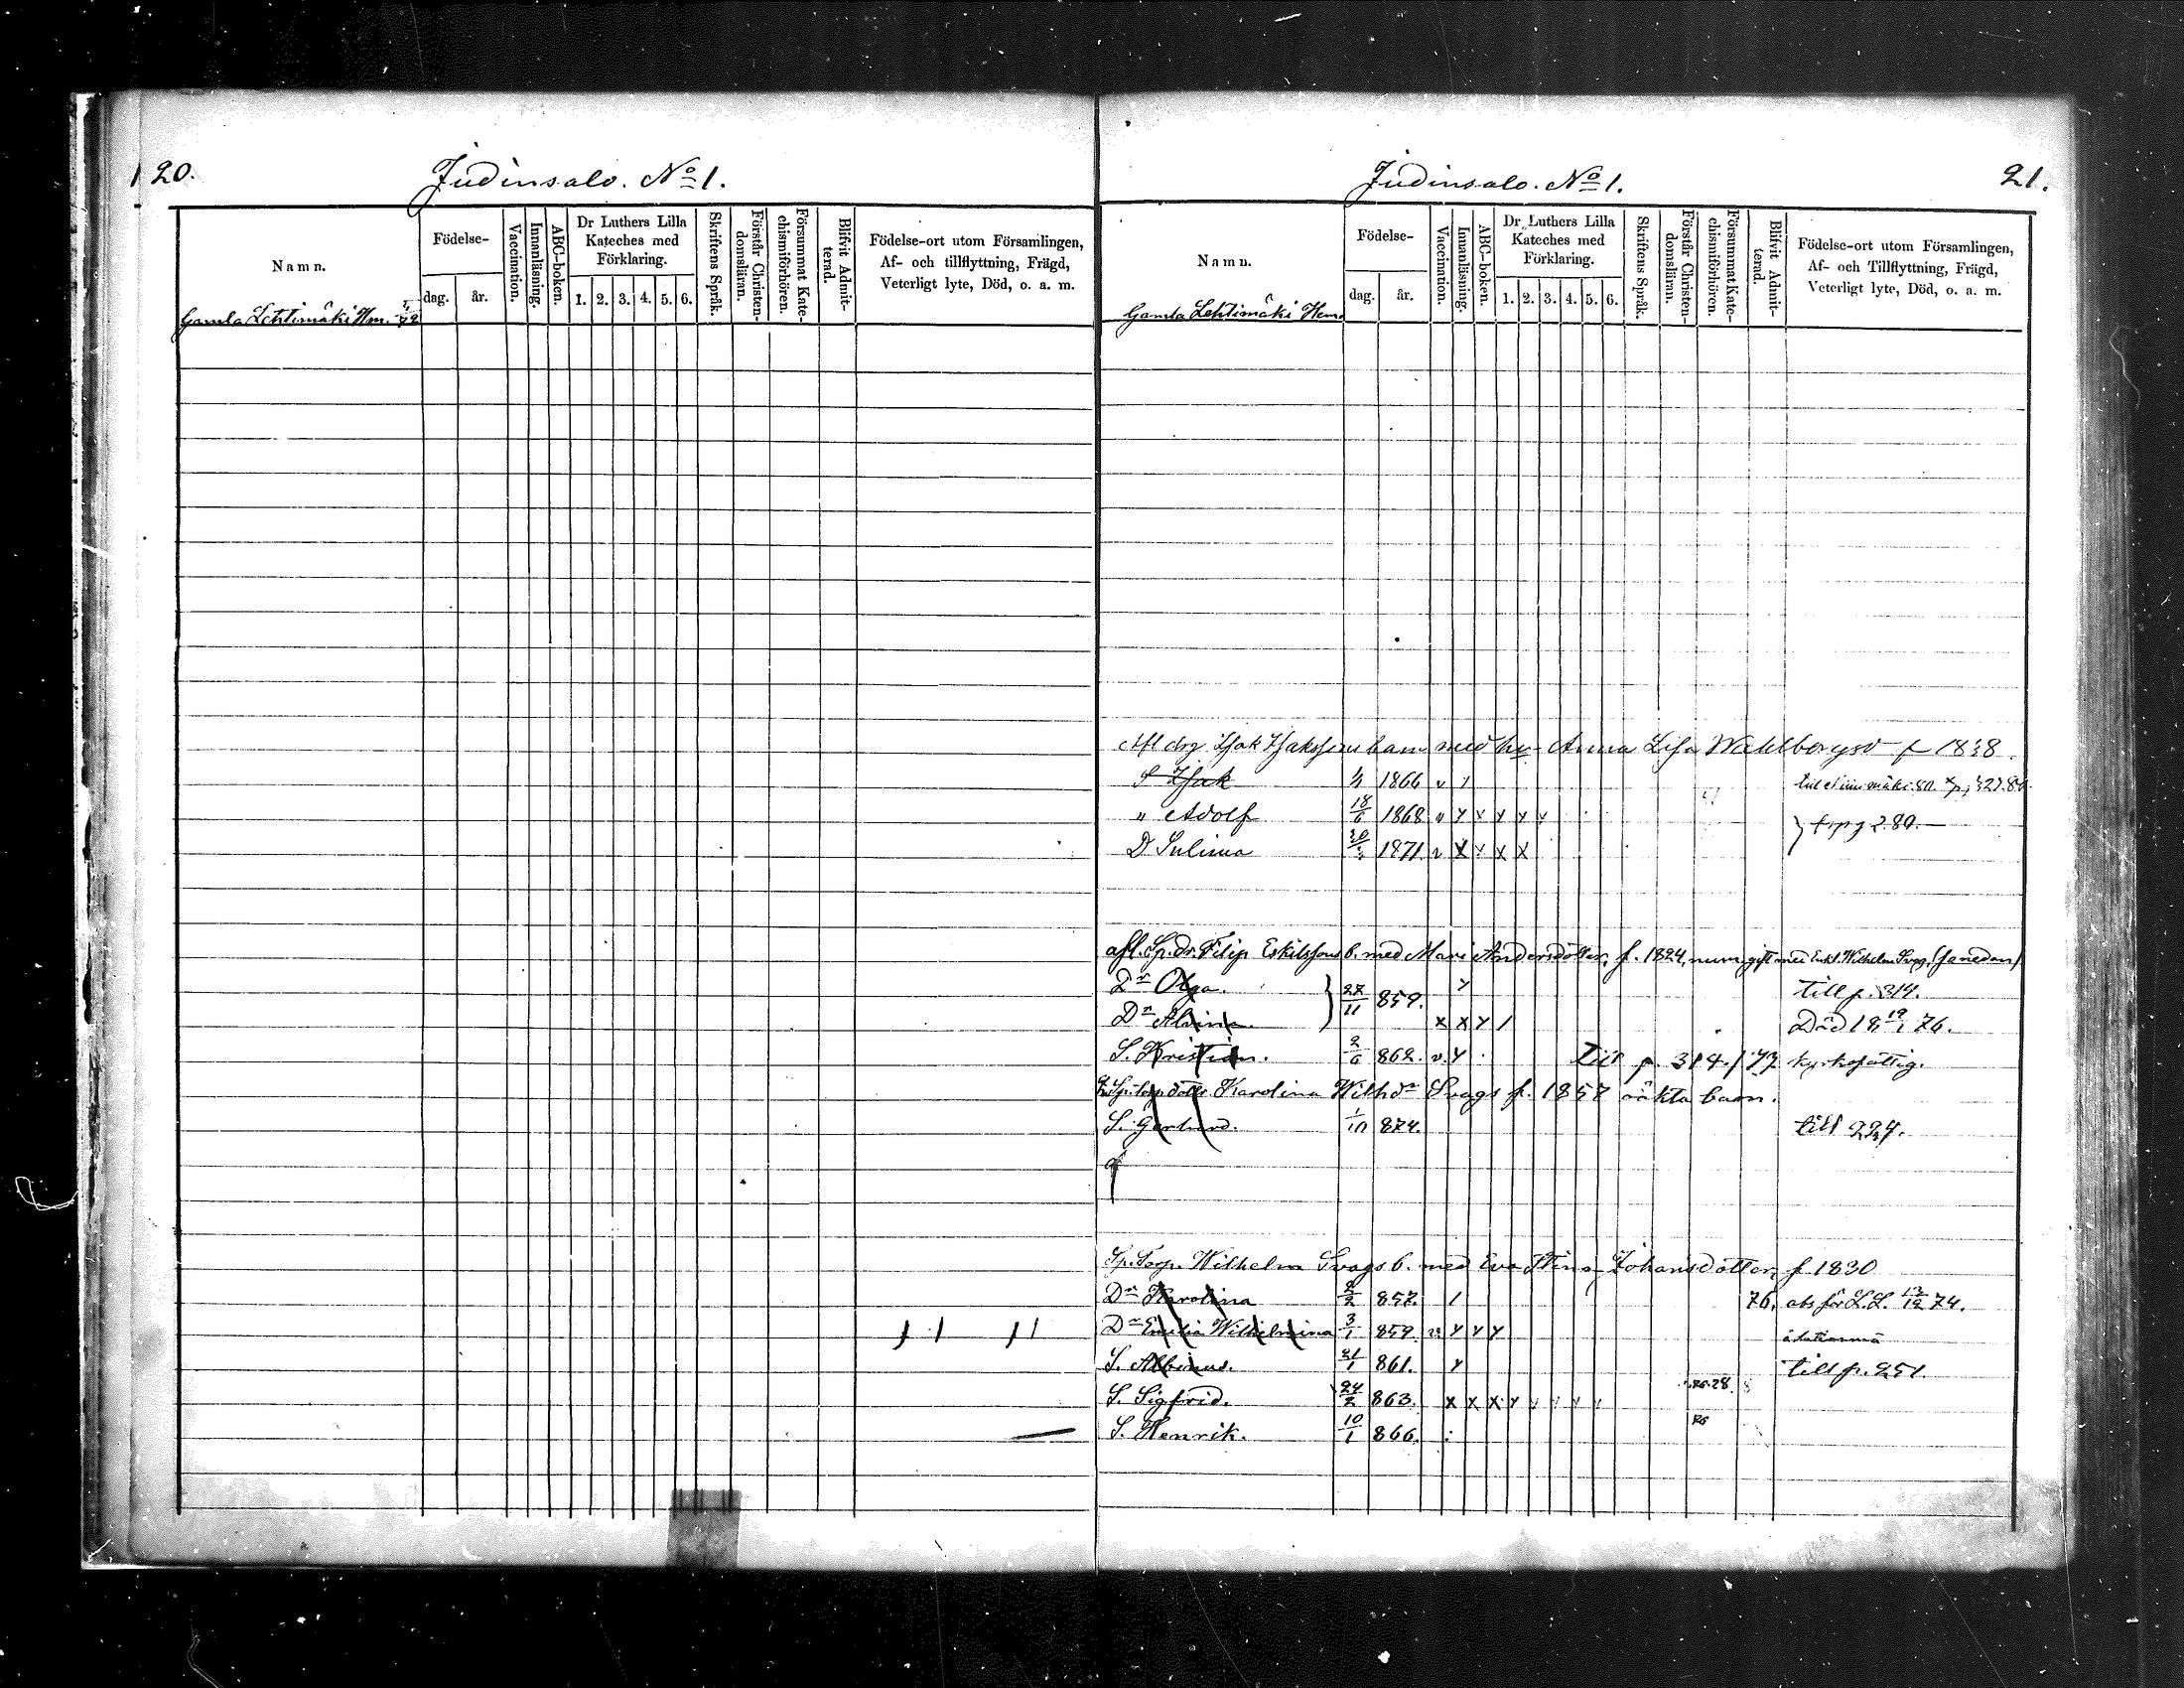 120.
Judinsalo. No 1.
Namn.
Födelse-
dag.
år.
Vaccination.
Innanläsning.
ABC-boken.
Dr Luthers Lilla
Kateches med
Förklaring.
1. 2. 3. 4. 5. 6.
Skriftens Språk.
Förstår Christen-
domsläran.
Försummat Kate-
chismiförhören.
Blifvit Admit-
terad.
Födelse-ort utom Församlingen,
Af- och tillflyttning, Frägd,
Veterligt lyte, Död, o. a. m.
Gamla Lehtimäki Hm.
Judinsalo. No 1.
21.
Namn.
Födelse-
dag.
år.
Vaccination.
Innanläsning.
ABC-boken.
Dr Luthers Lilla
Kateches med
Förklaring.
1. 2. 3. 4. 5. 6.
Skriftens Språk.
Förstår Christen-
domsläran.
Försummat Kate-
chismiförhören.
Blifvit Admit-
terad.
Födelse-ort utom Församlingen,
Af- och Tillflyttning, Frägd,
Veterligt lyte, Död, o. a. m.
Gamla Lehtimäki Hem.
Afl drg Isak Isakssons barn med hu Anna Lisa Wahlbergsd f 1838.
S Isak 1866 v /
" Adolf 18/6 1868 v y x y x v
D Sulima 1871 v x x x x
afl. Sp. dr. Filip Eskilssons b. med Maria Andersdotter, f. 1824, num gift med Enkl. Wilhelm Svag. (se nedan)
Dr Olga. 27/11 859. y till p. 314.
Dr Alvina. x x y / Död 18 19/1 76.
S. Kristian. 2/6 862. v. y Till p. 314. / 77 kyrkofattig.
Karolina Wilhdr Svags f. 1857 oäkta barn.
S. Gerhard. 1/10 874. till 224.
Sp. Torp. Wilhelm Svags b. med Eva Stina Johansdotter, f 1830
Dr Karolina 2/2 857. / 76. abs för L. L. 74.
Dr Emilia Wilhelmina 3/1 859. v y y y
S. Albinus. 21/1 861. y till p. 251.
S. Sigfrid. 24/2 863. x x x y
S. Henrik. 10/1 866.